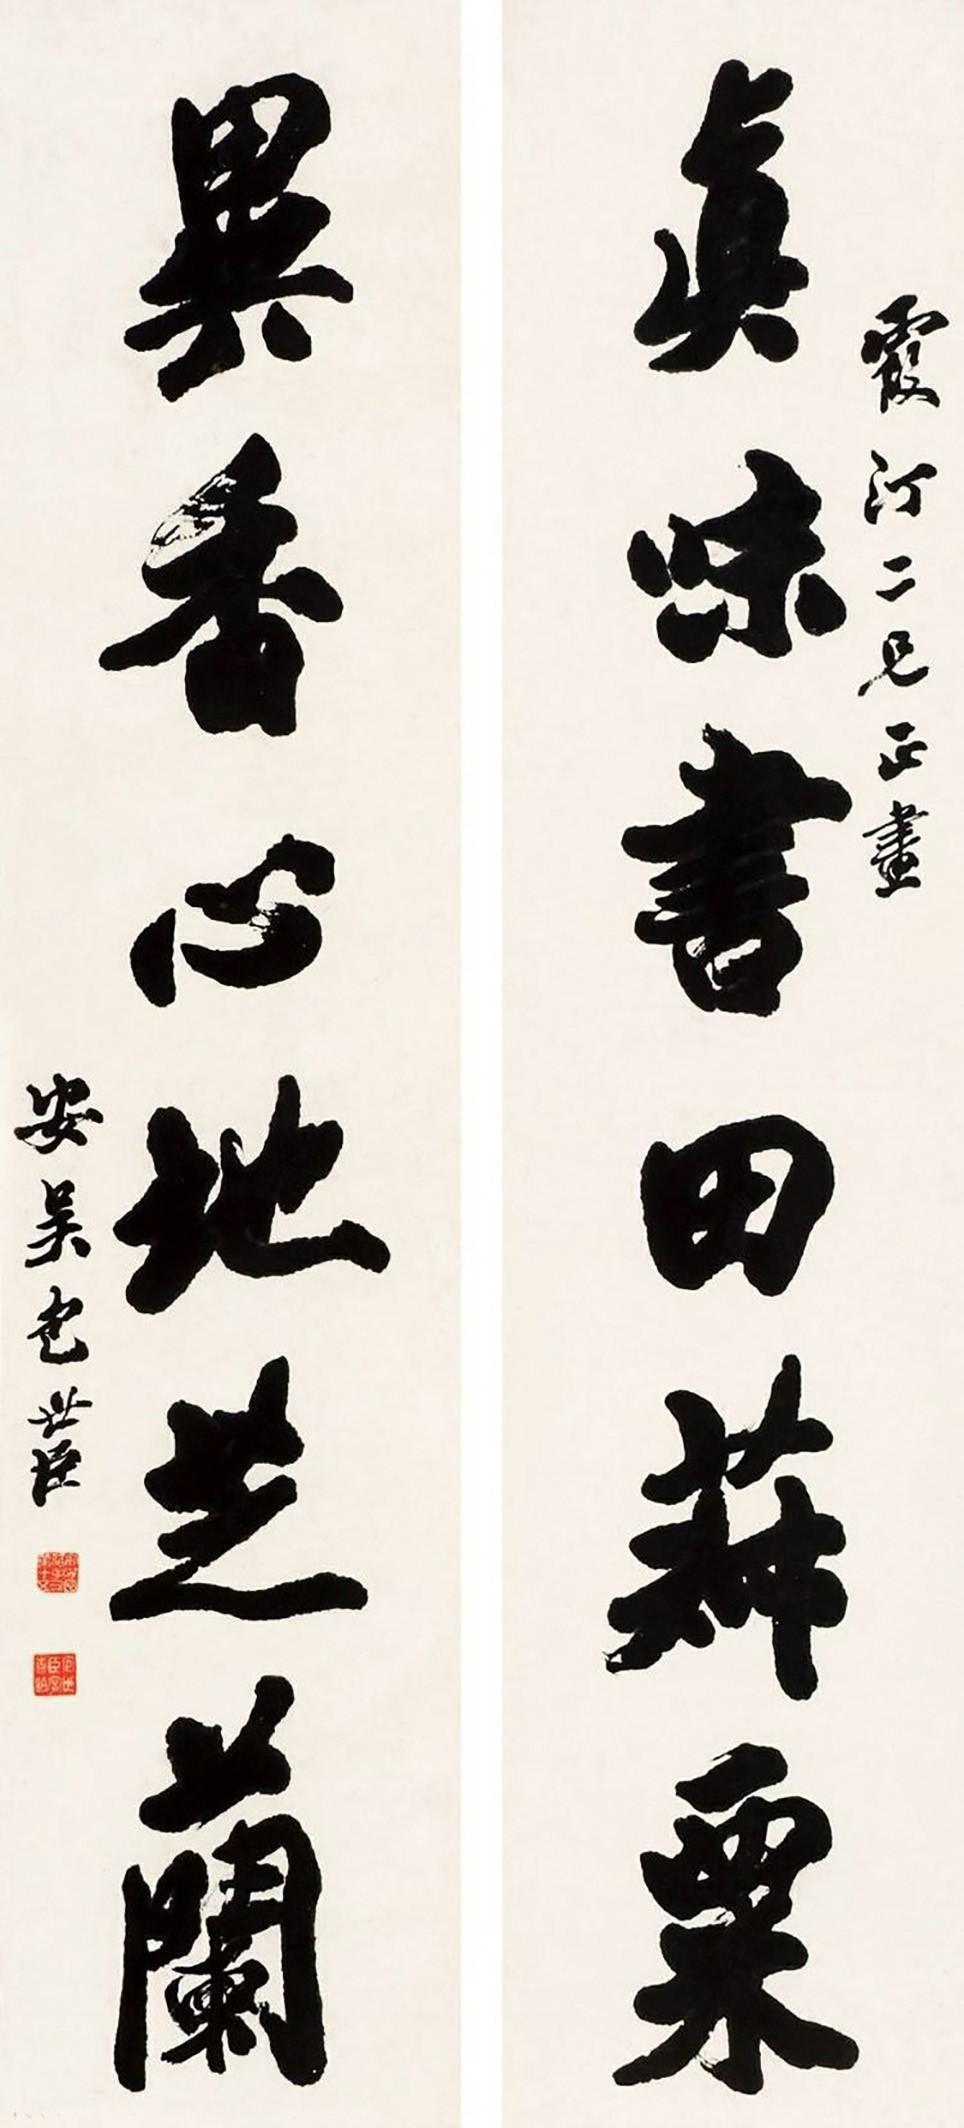 霞汀二兄正畫
真味書田菽粟
異香心地芝蘭
安吳包世臣